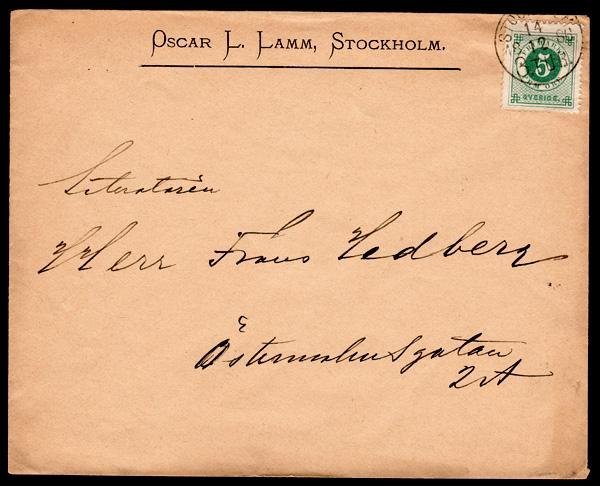 OSCAR L. LAMM, STOCKHOLM.
14
12
5
SVERIGE.
Literatören
Herr Frans Hedberg
Östermalmsgatan
2A